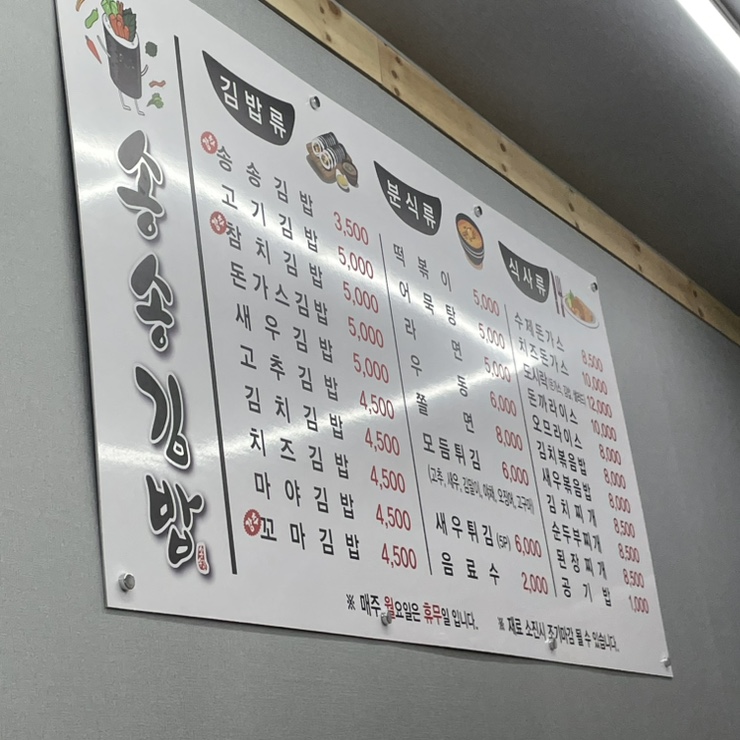 송송김밥
김밥류
송송김밥 3,500
고기김밥 5,000
참치김밥 5,000
돈가스김밥 5,000
새우김밥 5,000
고추김밥 4,500
김치김밥 4,500
치즈김밥 4,500
마야김밥 4,500
꼬마김밥 4,500
분식류
떡볶이 5,000
어묵탕 5,000
라면 5,000
우동 6,000
쫄면 8,000
모듬튀김 6,000
(고추, 새우, 김말이, 야채, 오징어, 고구마)
새우튀김(5P) 6,000
음료수 2,000
식사류
수제돈가스 8,500
치즈돈가스 10,000
도시락 12,000
돈까라이스 10,000
오므라이스 8,000
김치볶음밥 8,000
새우볶음밥 8,000
김치찌개 8,500
순두부찌개 8,500
된장찌개 8,500
공기밥 1,000
※ 매주 월요일은 휴무일 입니다.
※ 재료 소진시 조기마감 될 수 있습니다.